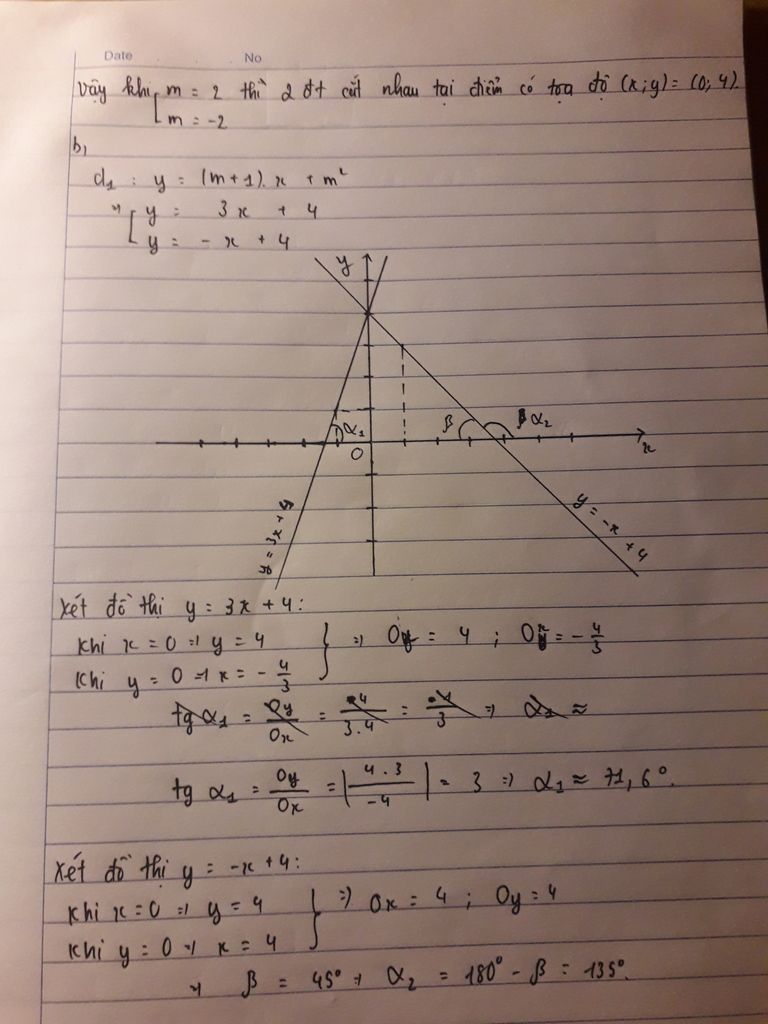 Date No
Vậy khi [ m = 2 thì 2 đt cắt nhau tại điểm có tọa độ (x;y) = (0; 4).
m = -2
b,
d₁ : y = (m+1). x + m²
⇒ [ y = 3x + 4
y = - x + 4
y
α₁ β α₂
O x
y = 3x + 4
y = -x + 4
Xét đồ thị y = 3x + 4 :
Khi x = 0 ⇒ y = 4 } ⇒ Oy = 4 ; Ox = - 4/3
Khi y = 0 ⇒ x = - 4/3
tg α₁ = Oy/Ox = 4/3.4 = 4/3 ⇒ α₁ ≈
tg α₁ = Oy/Ox = | 4.3/-4 | = 3 ⇒ α₁ ≈ 71,6°.
Xét đồ thị y = -x + 4 :
Khi x = 0 ⇒ y = 4 } ⇒ Ox = 4 ; Oy = 4
Khi y = 0 ⇒ x = 4
⇒ β = 45° ⇒ α₂ = 180° - β = 135°.